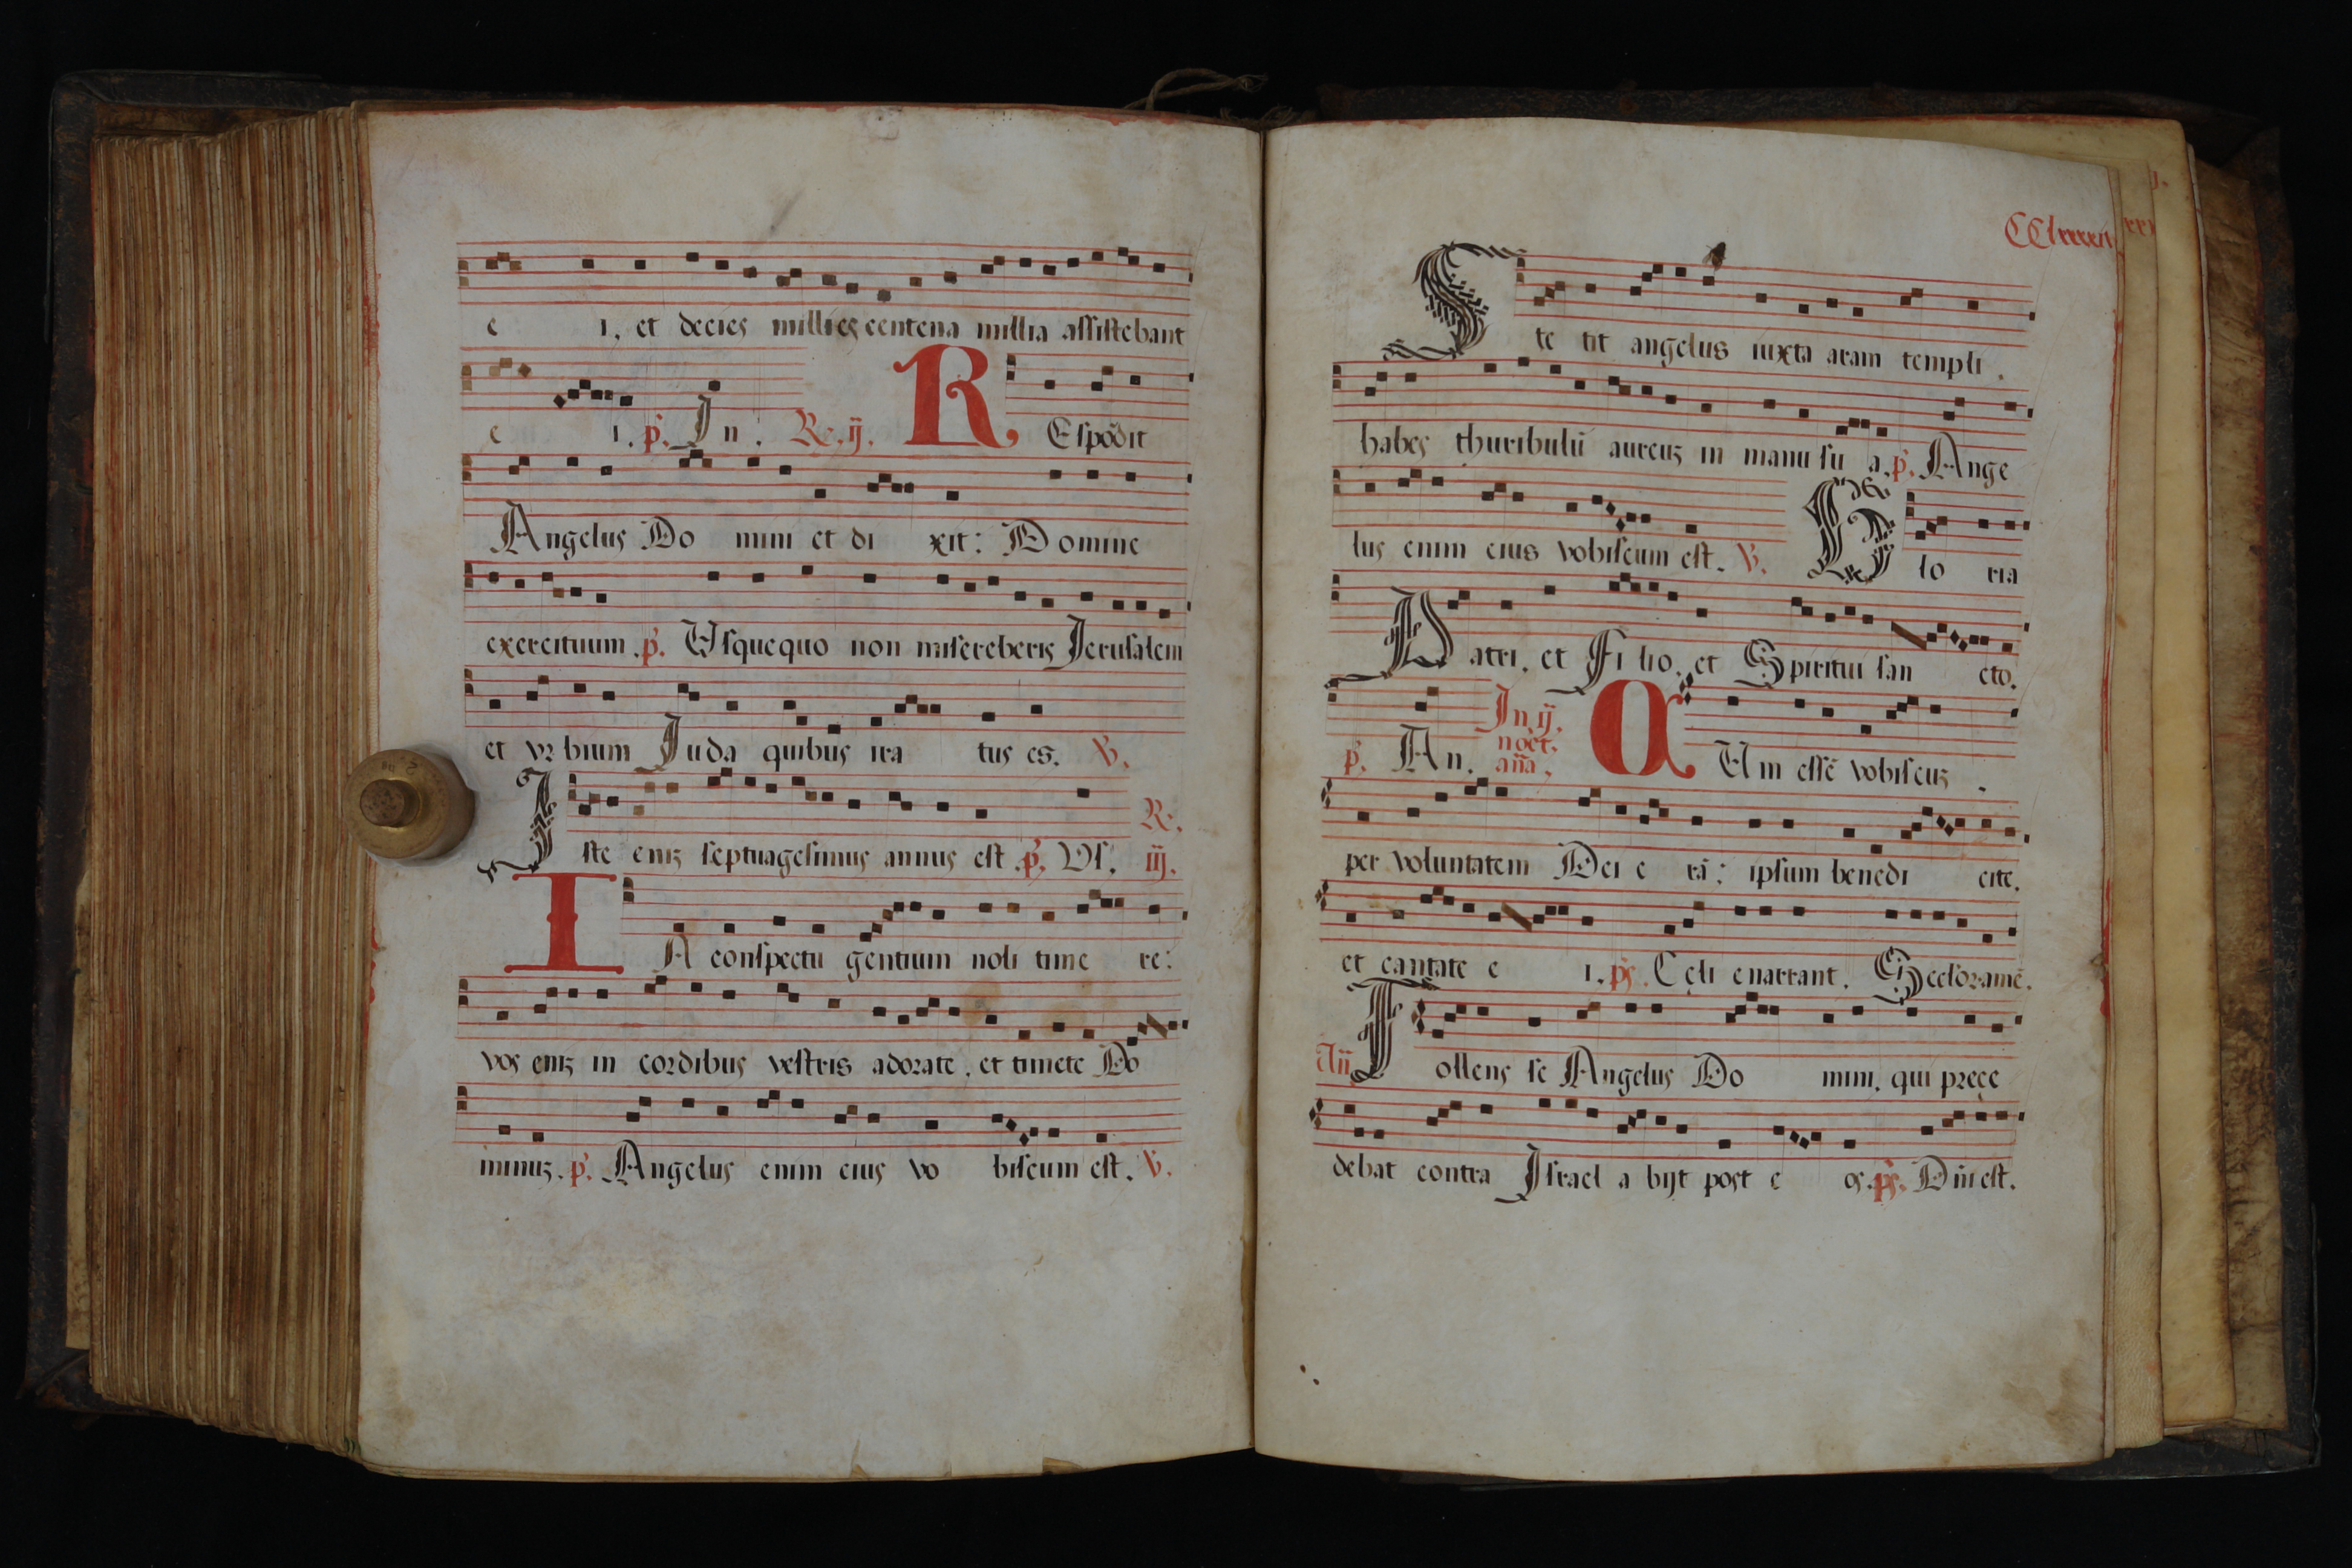 e i, et decies millies centena millia assistebant
e i. p̃. In. Re. ij. REspõdit
Angelus Do mini et di xit: Domine
exercituum. p̃. Usquequo non misereberis Jerusalem
et vrbium Juda quibus ira tus es. V̾.
Iste eniʒ septuagesimus annus est. p̃. Us. R. iij.
IA conspectu gentium noli time re:
vos eniʒ in cordibus vestris adorate, et timete Do
minuʒ. p̃. Angelus enim eius vo biscum est. V̾.
Ste tit angelus iuxta aram templi.
habẽs thuribulũ aureuʒ in manu su a. p̃. Ange
lus enim eius vobiscum est. V̾. Glo ria
Patri, et Filio, et Spiritui san cto.
p̃. An. In. ij. noct. añã. CUm essẽ vobiscuʒ
per voluntatem Dei e rã: ipsum benedi cite,
et cantate e i. ps. Celi enarrant. Secĩoramẽ.
Añ Tollens se Angelus Do mini, qui prece
debat contra Israel abijt post e os. ps. Dñi est.